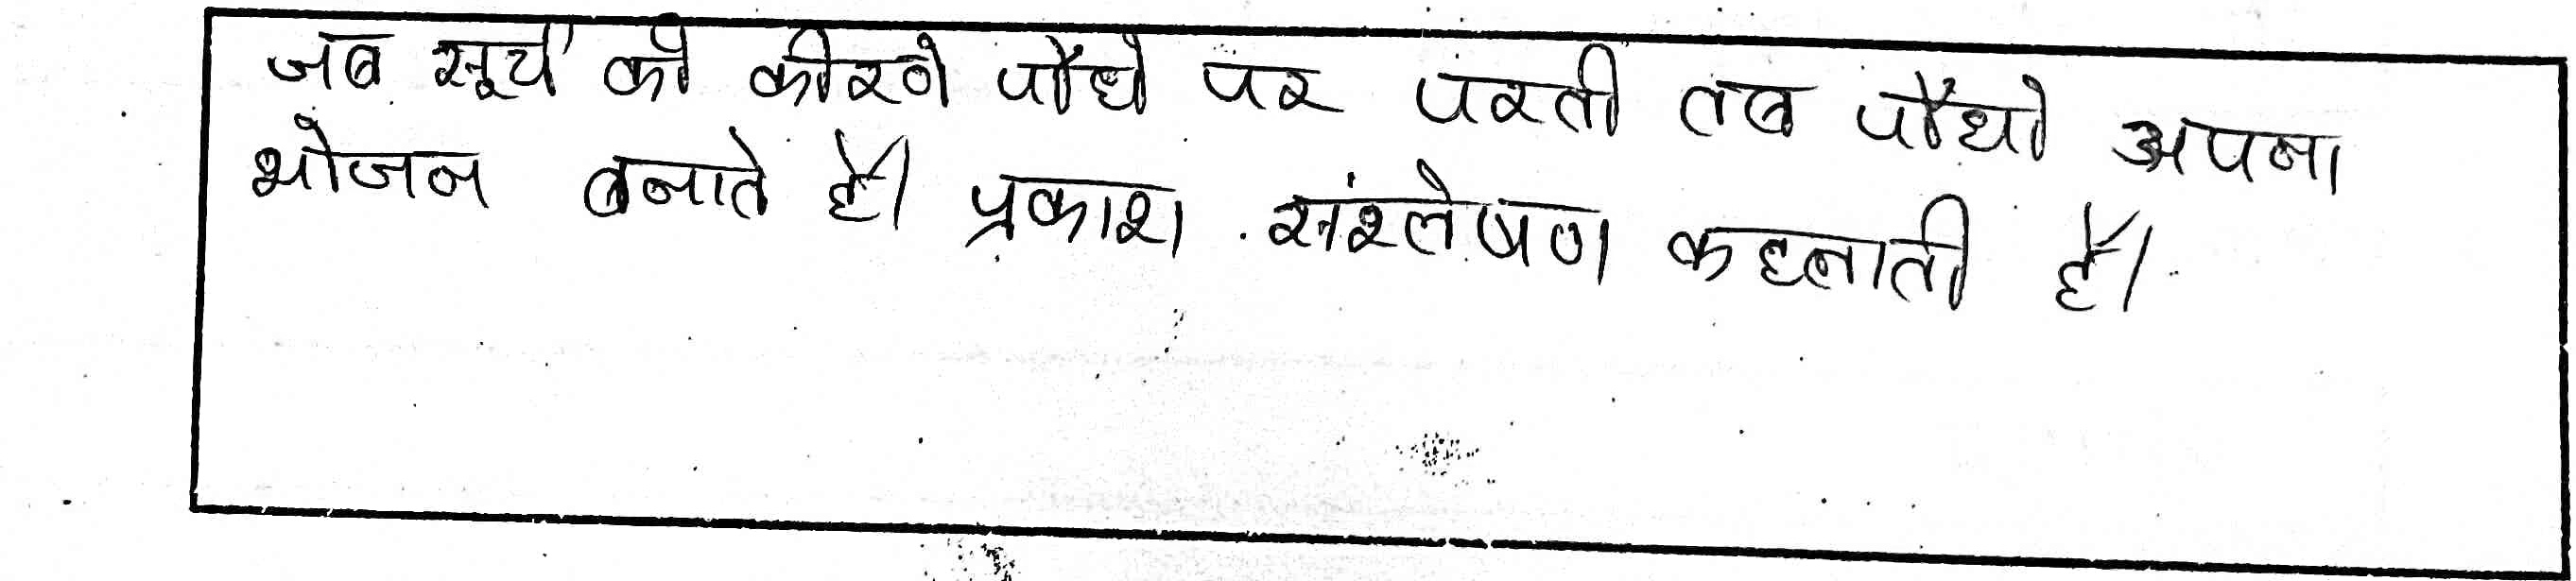 जब सूर्य की कीरणे पौधे पर परती तब पौधो अपना
भोजन बनाते है। प्रकाश संश्लेषण कहलाती है।